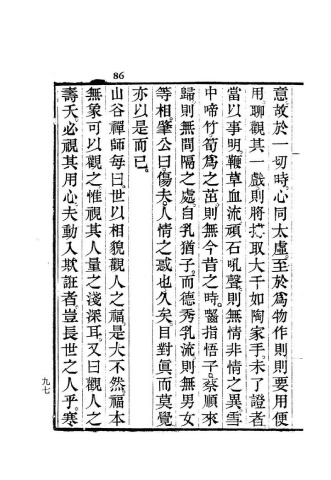 86
意故於一切時。心同太虛。至於為物作則則要用便
用聊觀其一戲則將搏取大千如陶家手。未了證者
當以事明。鞭草血流頑石吼聲。則無情非情之異。雪
中啼竹筍為之茁。則無今昔之時。囓指悟子。蔡順來
歸則無間隔之處。自乳猶子。而德秀乳流則無男女
等相。肇公曰。傷夫。人情之惑也久矣。目對真而莫覺
亦以是而已。
山谷禪師每曰。世以相貌觀人之福。是大不然。福本
無象可以觀之。惟視其人量之淺深耳。又曰。觀人之
壽夭必視其用心。夫動入欺誑者。豈長世之人乎。寒
九七